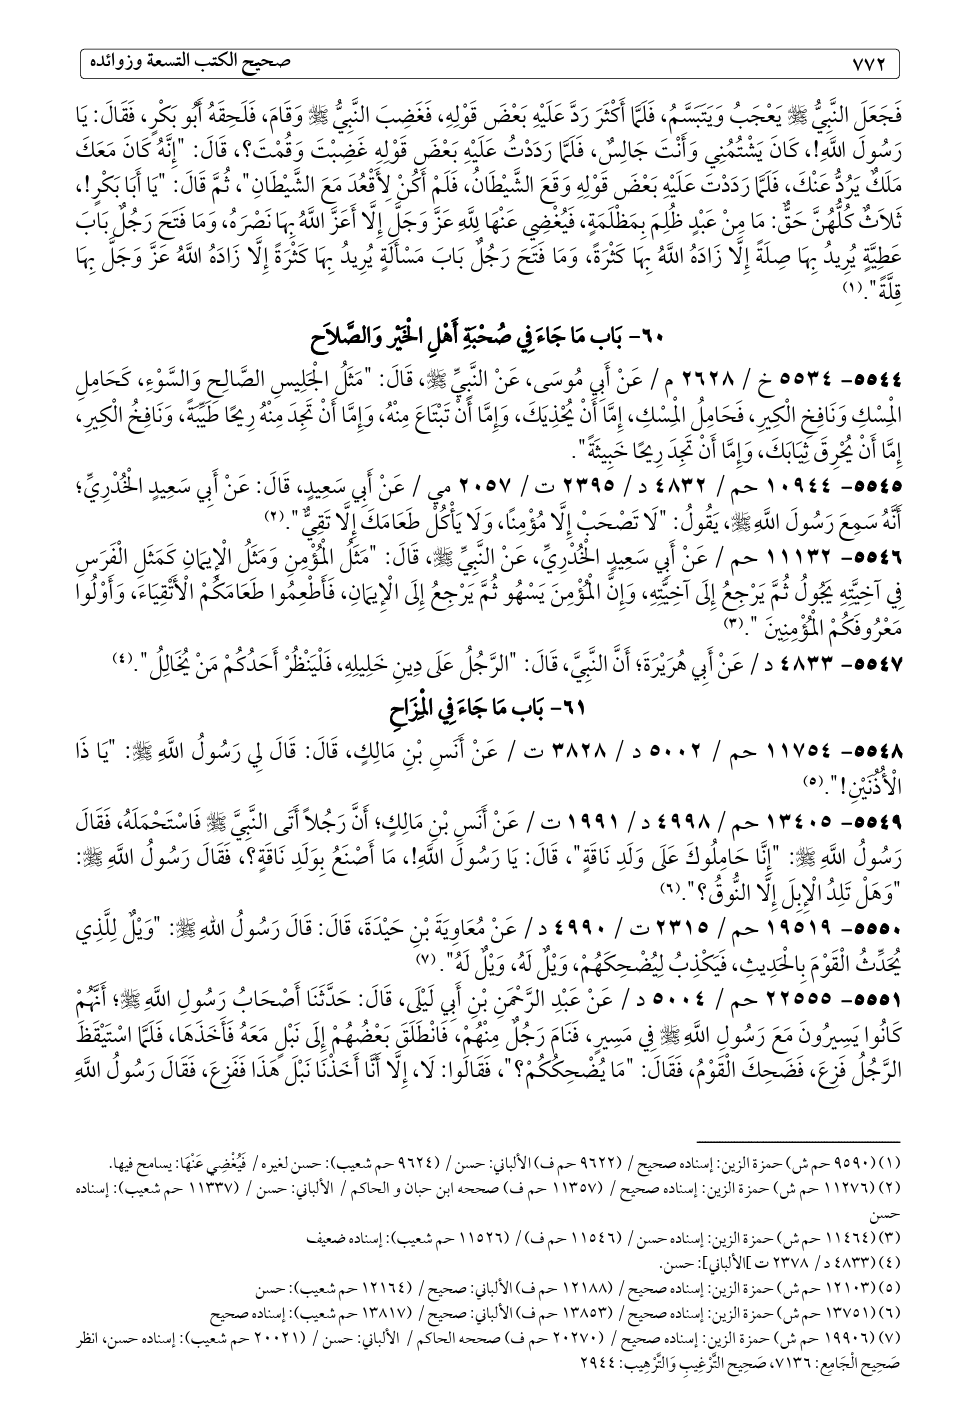 ٧٧٢ صحيح الكتب التسعة وزوائده
فَجَعَلَ النَّبِيُّ ﷺ يَعْجَبُ وَيَتَبَسَّمُ، فَلَمَّا أَكْثَرَ رَدَّ عَلَيْهِ بَعْضَ قَوْلِهِ، فَغَضِبَ النَّبِيُّ ﷺ وَقَامَ، فَلَحِقَهُ أَبُو بَكْرٍ، فَقَالَ: يَا
رَسُولَ اللَّهِ!، كَانَ يَشْتُمُنِي وَأَنْتَ جَالِسٌ، فَلَمَّا رَدَدْتُ عَلَيْهِ بَعْضَ قَوْلِهِ غَضِبْتَ وَقُمْتَ؟، قَالَ: "إِنَّهُ كَانَ مَعَكَ
مَلَكٌ يَرُدُّ عَنْكَ، فَلَمَّا رَدَدْتَ عَلَيْهِ بَعْضَ قَوْلِهِ وَقَعَ الشَّيْطَانُ، فَلَمْ أَكُنْ لِأَقْعُدَ مَعَ الشَّيْطَانِ"، ثُمَّ قَالَ: "يَا أَبَا بَكْرٍ!،
ثَلَاثٌ كُلُّهُنَّ حَقٌّ: مَا مِنْ عَبْدٍ ظُلِمَ بِمَظْلَمَةٍ، فَيُغْضِي عَنْهَا لِلَّهِ عَزَّ وَجَلَّ إِلَّا أَعَزَّ اللَّهُ بِهَا نَصْرَهُ، وَمَا فَتَحَ رَجُلٌ بَابَ
عَطِيَّةٍ يُرِيدُ بِهَا صِلَةً إِلَّا زَادَهُ اللَّهُ بِهَا كَثْرَةً، وَمَا فَتَحَ رَجُلٌ بَابَ مَسْأَلَةٍ يُرِيدُ بِهَا كَثْرَةً إِلَّا زَادَهُ اللَّهُ عَزَّ وَجَلَّ بِهَا
قِلَّةً".(١)
٦٠- بَاب مَا جَاءَ فِي صُحْبَةِ أَهْلِ الْخَيْر وَالصَّلاَح
٥٥٤٤- ٥٥٣٤ خ / ٢٦٢٨ م / عَنْ أَبِي مُوسَى، عَنْ النَّبِيِّ ﷺ، قَالَ: "مَثَلُ الْجَلِيسِ الصَّالِحِ وَالسَّوْءِ، كَحَامِلِ
الْمِسْكِ وَنَافِخِ الْكِيرِ، فَحَامِلُ الْمِسْكِ، إِمَّا أَنْ يُحْذِيَكَ، وَإِمَّا أَنْ تَبْتَاعَ مِنْهُ، وَإِمَّا أَنْ تَجِدَ مِنْهُ رِيحًا طَيِّبَةً، وَنَافِخُ الْكِيرِ،
إِمَّا أَنْ يُحْرِقَ ثِيَابَكَ، وَإِمَّا أَنْ تَجِدَ رِيحًا خَبِيثَةً".
٥٥٤٥- ١٠٩٤٤ حم / ٤٨٣٢ د / ٢٣٩٥ ت / ٢٠٥٧ مي / عَنْ أَبِي سَعِيدٍ، قَالَ: عَنْ أَبِي سَعِيدٍ الْخُدْرِيِّ؛
أَنَّهُ سَمِعَ رَسُولَ اللَّهِ ﷺ، يَقُولُ: "لَا تَصْحَبْ إِلَّا مُؤْمِنًا، وَلَا يَأْكُلْ طَعَامَكَ إِلَّا تَقِيٌّ".(٢)
٥٥٤٦- ١١١٣٢ حم / عَنْ أَبِي سَعِيدٍ الْخُدْرِيِّ، عَنْ النَّبِيِّ ﷺ، قَالَ: "مَثَلُ الْمُؤْمِنِ وَمَثَلُ الْإِيمَانِ كَمَثَلِ الْفَرَسِ
فِي آخِيَّتِهِ يَجُولُ ثُمَّ يَرْجِعُ إِلَى آخِيَّتِهِ، وَإِنَّ الْمُؤْمِنَ يَسْهُو ثُمَّ يَرْجِعُ إِلَى الْإِيمَانِ، فَأَطْعِمُوا طَعَامَكُمْ الْأَتْقِيَاءَ، وَأَوْلُوا
مَعْرُوفَكُمْ الْمُؤْمِنِينَ ".(٣)
٥٥٤٧- ٤٨٣٣ د / عَنْ أَبِي هُرَيْرَةَ؛ أَنَّ النَّبِيَّ، قَالَ: "الرَّجُلُ عَلَى دِينِ خَلِيلِهِ، فَلْيَنْظُرْ أَحَدُكُمْ مَنْ يُخَالِلُ".(٤)
٦١- بَاب مَا جَاءَ فِي الْمِزَاحِ
٥٥٤٨- ١١٧٥٤ حم / ٥٠٠٢ د / ٣٨٢٨ ت / عَنْ أَنَسِ بْنِ مَالِكٍ، قَالَ: قَالَ لِي رَسُولُ اللَّهِ ﷺ: "يَا ذَا
الْأُذُنَيْنِ!".(٥)
٥٥٤٩- ١٣٤٠٥ حم / ٤٩٩٨ د / ١٩٩١ ت / عَنْ أَنَسِ بْنِ مَالِكٍ؛ أَنَّ رَجُلاً أَتَى النَّبِيَّ ﷺ فَاسْتَحْمَلَهُ، فَقَالَ
رَسُولُ اللَّهِ ﷺ: "إِنَّا حَامِلُوكَ عَلَى وَلَدِ نَاقَةٍ"، قَالَ: يَا رَسُولَ اللَّهِ!، مَا أَصْنَعُ بِوَلَدِ نَاقَةٍ؟، فَقَالَ رَسُولُ اللَّهِ ﷺ:
"وَهَلْ تَلِدُ الْإِبِلَ إِلَّا النُّوقُ؟".(٦)
٥٥٥٠- ١٩٥١٩ حم / ٢٣١٥ ت / ٤٩٩٠ د / عَنْ مُعَاوِيَةَ بْنِ حَيْدَةَ، قَالَ: قَالَ رَسُولُ اللهِ ﷺ: "وَيْلٌ لِلَّذِي
يُحَدِّثُ الْقَوْمَ بِالْحَدِيثِ، فَيَكْذِبُ لِيُضْحِكَهُمْ، وَيْلٌ لَهُ، وَيْلٌ لَهُ".(٧)
٥٥٥١- ٢٢٥٥٥ حم / ٥٠٠٤ د / عَنْ عَبْدِ الرَّحْمَنِ بْنِ أَبِي لَيْلَى، قَالَ: حَدَّثَنَا أَصْحَابُ رَسُولِ اللَّهِ ﷺ؛ أَنَّهُمْ
كَانُوا يَسِيرُونَ مَعَ رَسُولِ اللَّهِ ﷺ فِي مَسِيرٍ، فَنَامَ رَجُلٌ مِنْهُمْ، فَانْطَلَقَ بَعْضُهُمْ إِلَى نَبْلٍ مَعَهُ فَأَخَذَهَا، فَلَمَّا اسْتَيْقَظَ
الرَّجُلُ فَزِعَ، فَضَحِكَ الْقَوْمُ، فَقَالَ: "مَا يُضْحِكُكُمْ؟"، فَقَالُوا: لَا، إِلَّا أَنَّا أَخَذْنَا نَبْلَ هَذَا فَفَزِعَ، فَقَالَ رَسُولُ اللَّهِ
(١) (٩٥٩٠ حم ش) حمزة الزين: إسناده صحيح / (٩٦٢٢ حم ف) الألباني: حسن / (٩٦٢٤ حم شعيب): حسن لغيره / فَيُغْضِي عَنْهَا: يسامح فيها.
(٢) (١١٢٧٦ حم ش) حمزة الزين: إسناده صحيح / (١١٣٥٧ حم ف) صححه ابن حبان و الحاكم / الألباني: حسن / (١١٣٣٧ حم شعيب): إسناده
حسن
(٣) (١١٤٦٤ حم ش) حمزة الزين: إسناده حسن / (١١٥٤٦ حم ف) / (١١٥٢٦ حم شعيب): إسناده ضعيف
(٤) (٤٨٣٣ د / ٢٣٧٨ ت ]الألباني[: حسن.
(٥) (١٢١٠٣ حم ش) حمزة الزين: إسناده صحيح / (١٢١٨٨ حم ف) الألباني: صحيح / (١٢١٦٤ حم شعيب): حسن
(٦) (١٣٧٥١ حم ش) حمزة الزين: إسناده صحيح / (١٣٨٥٣ حم ف) الألباني: صحيح / (١٣٨١٧ حم شعيب): إسناده صحيح
(٧) (١٩٩٠٦ حم ش) حمزة الزين: إسناده صحيح / (٢٠٢٧٠ حم ف) صححه الحاكم / الألباني: حسن / (٢٠٠٢١ حم شعيب): إسناده حسن، انظر
صَحِيح الْجَامِع: ٧١٣٦، صَحِيح التَّرْغِيبِ وَالتَّرْهِيب: ٢٩٤٤